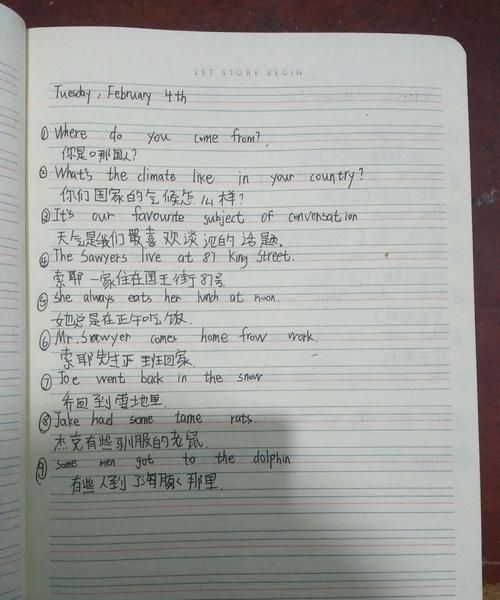 LET STORY BEGIN
Tuesday, February 4th
① Where do you come from?
你是哪国人?
② What's the climate like in your country?
你们国家的气候怎么样?
③ It's our favourite subject of conversation
天气是我们最喜欢谈论的话题.
④ The Sawyers live at 87 King Street.
索耶一家住在国王街87号
⑤ she always eats her lunch at noon.
她总是在正午吃饭.
⑥ Mr. Sawyer comes home from work.
索耶先生下班回家.
⑦ Joe went back in the snow
乔回到雪地里.
⑧ Jake had some tame rats.
杰克有些驯服的老鼠.
⑨ some men got to the dolphin
有些人到了海豚那里.